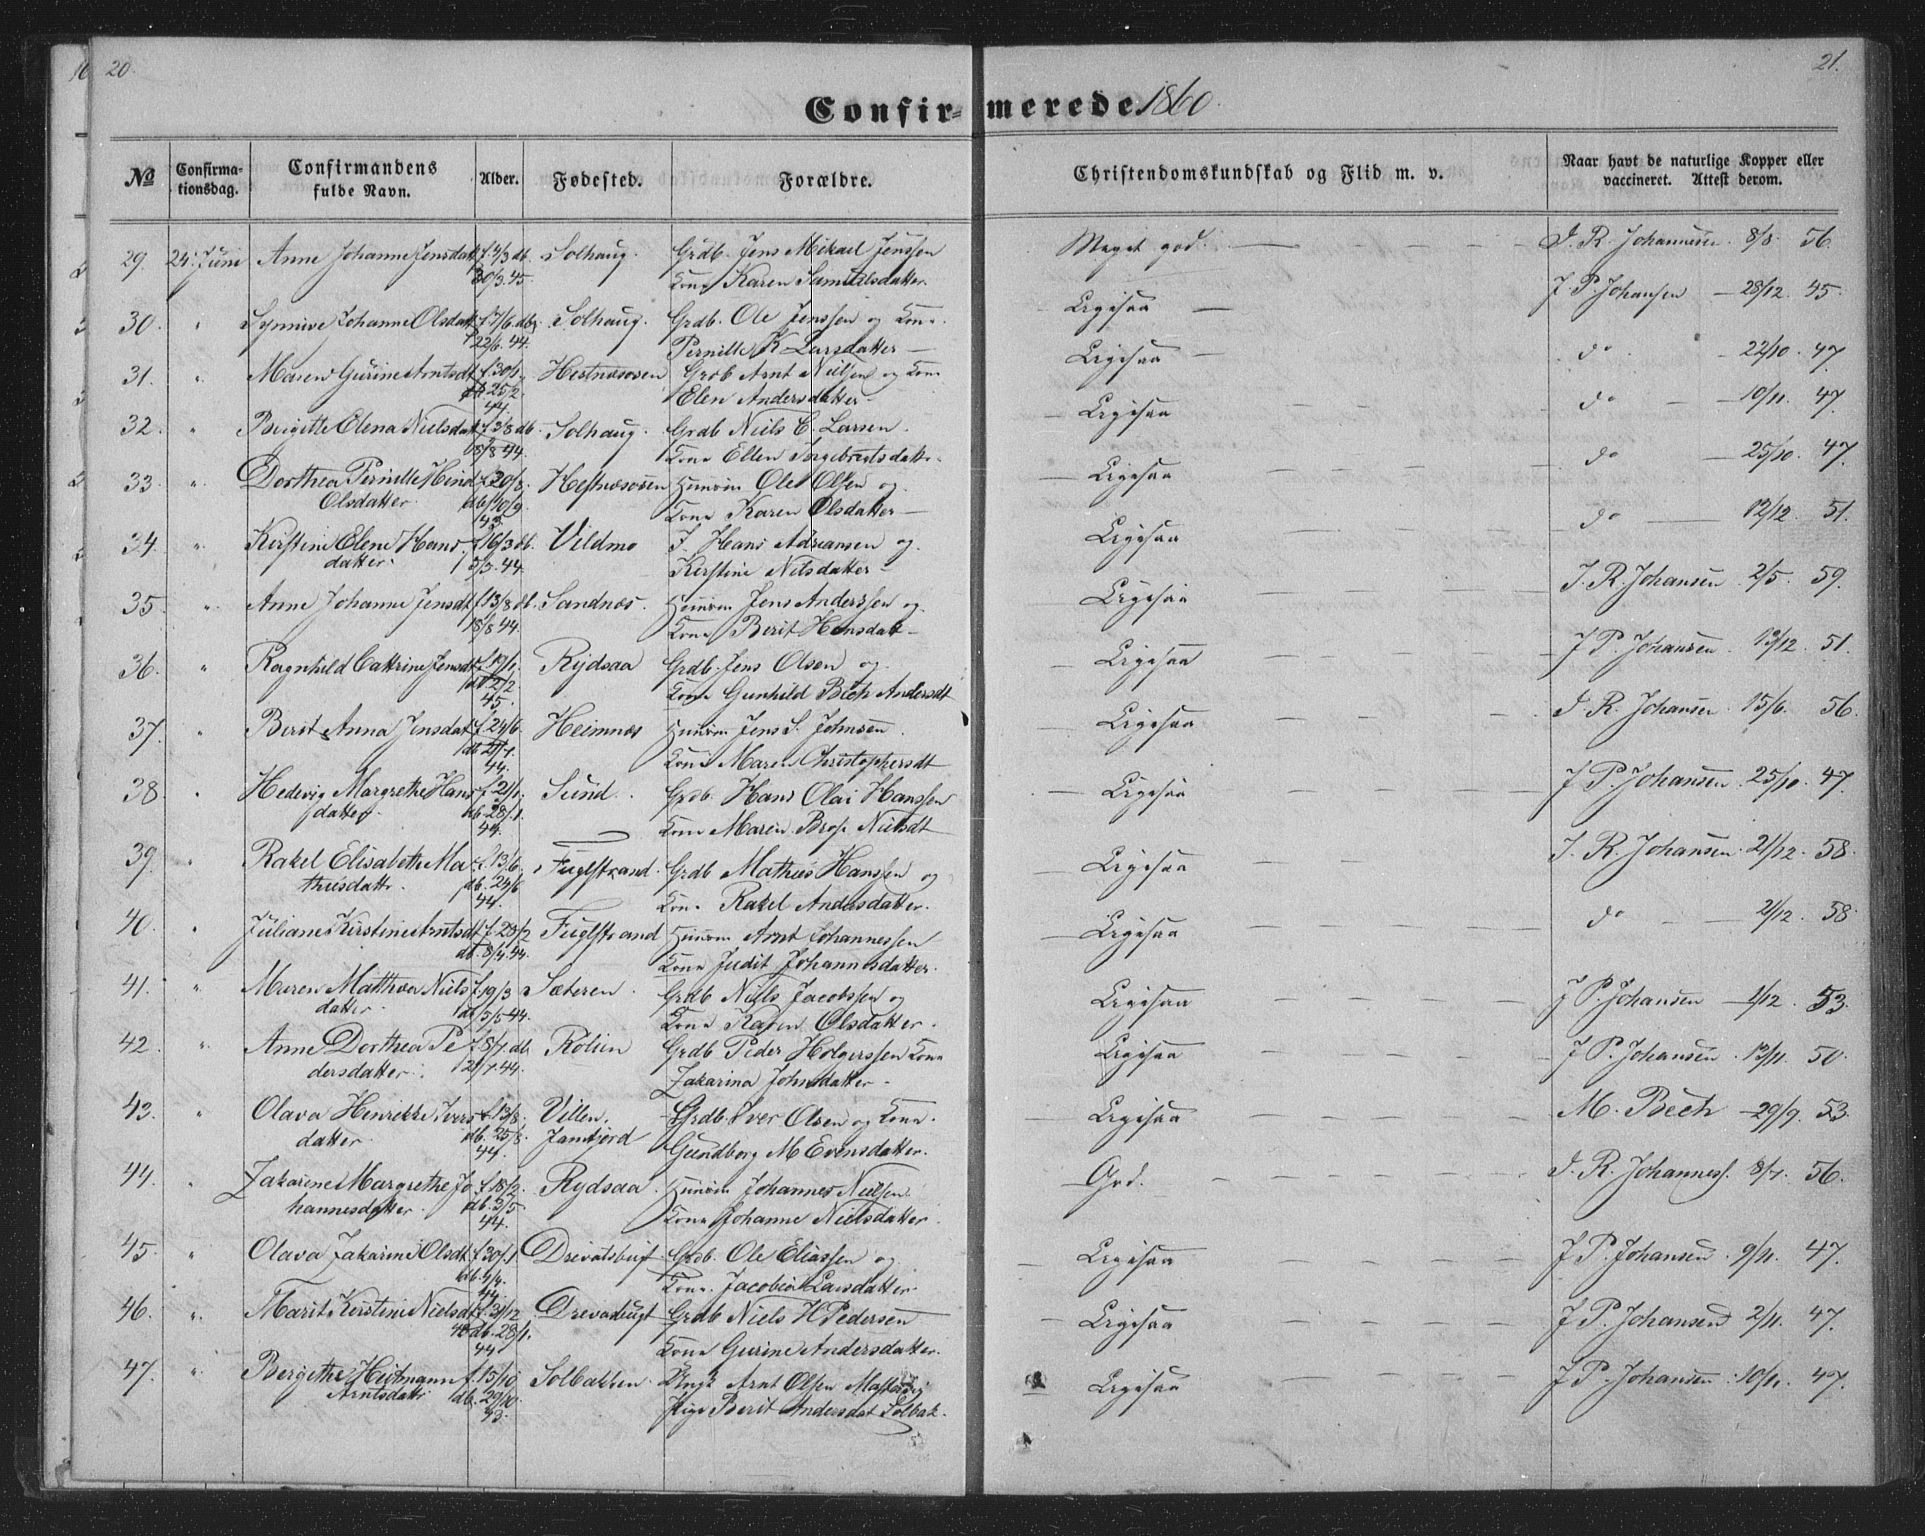 20.
21.
Confirmerede 1860.
No
Confirmationsdag.
Confirmandens fulde Navn.
Alder.
Fødested.
Forældre.
Christendomskundskab og Flid m. v.
Naar havt de naturlige Kopper eller vaccineret. Attest derom.
29. 24. Juni Anne Johanne Jensdat f. 4/3 db. Solhaug. Grdb. Jens Mikael Jenssen Meget god. J. R. Johannesse 8/8. 56.
30/3. 45. Kone Karen Samuelsdatter
30. " Synnive Johanne Olsdatt f. 7/6. db. Solhaug. Grdb. Ole Jenssen og Kone Ligesaa J P. Johansen 28/12. 45.
22/6. 44. Pernille K Larsdatter
31. " Maren Gurine Arntsdt f. 30/1. Hestnæsosen Grdb Arnt Nielsen og Kone Ligesaa do 22/10. 47.
db 25/2. 44. Elen Andersdatter
32. " Birgitte Olena Nielsdat f. 3/8 db. Solhaug. Grdb Niels C. Larsen. Ligesaa do 10/11. 47.
18/8 44. Kone Ellen Ingebregtsdatt.
33. " Dorthea Pernille Hind f. 20/8. Hestnæsosen Huusm Ole Olsen og Ligesaa do 25/10. 47.
Olsdatter db 10/9. 43. Kone Karen Olsdatter
34. " Kirstine Elene Hans f. 16/3 db. Vildmo J. Hans Adriansen og Ligesaa do 12/12. 51.
datter. 5/5. 44. Kirstine Nilsdatter
35. " Anne Johanne Jensdt f. 13/8 db. Sandnæs. Huusm Jens Anderssen og Ligesaa J. R. Johansen 2/5. 59.
18/8 44. Kone Berit Hansdatt
36. " Ragnhild Cathrine Jensdt f. 19/1. Rydsaa Grdb. Jens Olsen og Ligesaa J P. Johansen 13/12. 51.
db 2/2 45. Kone Gunhild Birth Andersdt
37. " Berit Anna Jensdat f. 24/6. Heimnæs Huusm Jens S. Johnsen Ligesaa J. R. Johansen 15/6. 56.
db 21/7. 44. Kone Maren Christophersdt
38. " Hedevig Margrethe Hans f. 21/1. Sund. Grdb. Hans Olai Hanssen Ligesaa J P. Johansen 25/10. 47.
datter. db. 28/1. 44. Kone Maren Nielsdt
39. " Rakel Elisabeth Ma f. 13/6. Fuglstrand. Grdb Mathias Hanssen og Ligesaa J. R. Johansen. 21/12. 58.
thisdatter. db. 24/6 44. Kone Rakel Andersdatter.
40. " Juliane Kirstine Arntsdt f. 28/2 Fuglstrand Huusm Arnt Johannessen Ligesaa do 2/12. 58
db. 8/4. 44. Kone Judit Johannesdatter.
41. " Maren Matthea Niels f. 19/3 Sæteren. Grdb Niels Jacobssen og Ligesaa J P. Johansen 1/12. 53.
datter. db 5/5 44. Kone Karen Olsdatter.
42. " Anne Dorthea Pe f. 8/7. db Rølien Grdb Peder Holgerssen Kone Ligesaa J P. Johansen. 13/11. 50.
dersdatter. 21/7. 44. Zakarina Johnsdatter.
43. " Olava Henrikke Ivers f. 13/8. Villen, Grdb. Iver Olsen og Kone Ligesaa M. Bech 29/9. 53.
datter db. 25/8. 44. Jamfjord Gundborg M Evensdatter.
44. " Zakarine Margrethe Jo f. 18/2. Rydsaa. Huusm Johannes Nielsen God. J. R. Johanness. 8/7. 56.
hannesdatter. db. 3/5 44. Kone Johanne Nielsdatter.
45. " Olava Jakarine Olsdt. f. 30/1 Grdb. Ole Eliassen og Ligesaa J P. Johansen 9/11. 47.
db. 4/4. 44. Kone Jacobia Larsdatter
46. " Marit Kirstine Nielsdt f. 31/12 Grdb Niels H Pedersen Ligesaa J P. Johansen 2/11. 47.
43 db. 28/1. 44 Kone Gurine Andersdatter.
47. " Bergithe Heitmann f. 15/10 Solbakken. Arnt Olsen Ligesaa J P. Johansen. 10/11. 47.
Arntsdatt db. 29/10. 43. Pige Berit Andersdat Solbak.